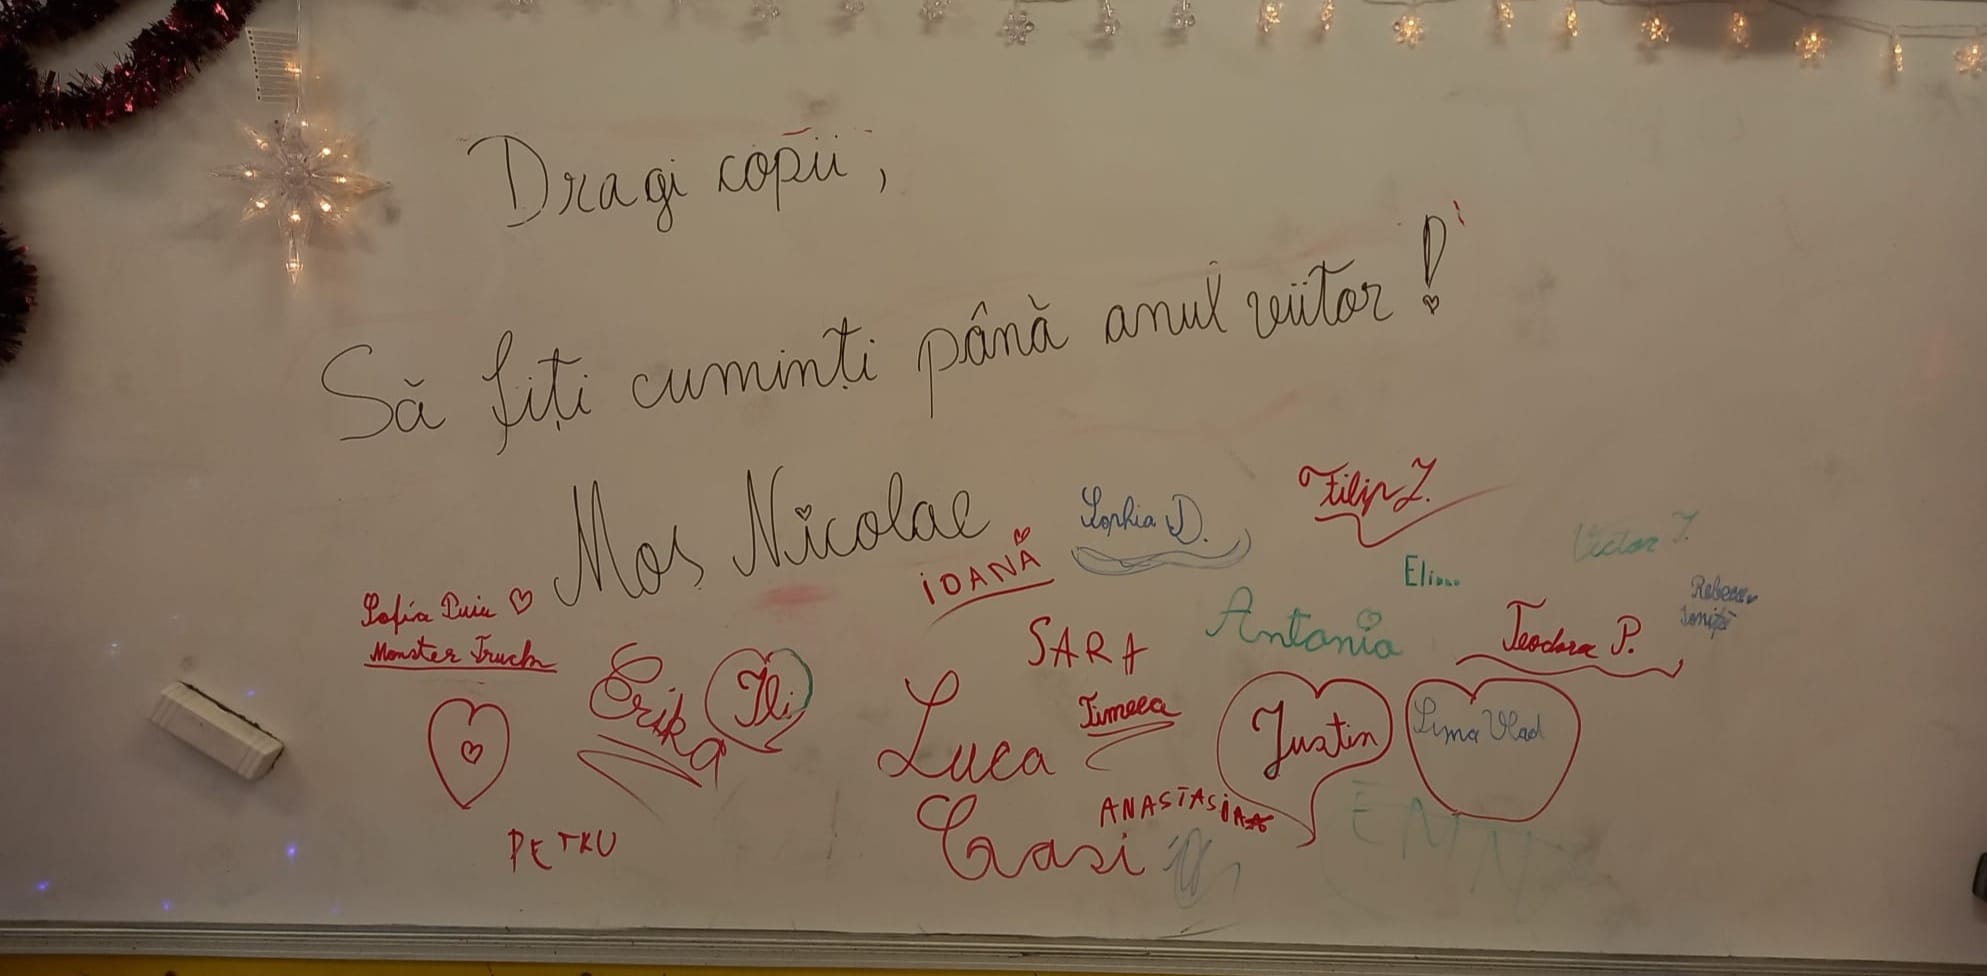 Dragi copii,
Să fiți cuminți până anul viitor!
Moș Nicolae
Sophia D.
Filip Z.
Victor I.
IOANA
Sofia Puiu
Monster Truck
Antonia
Teodora P.
Rebeca
Ioniță
SARA
Erika
Ili
Luca
Timeea
Justin
Sima Vlad
ANASTASIA
PETRU